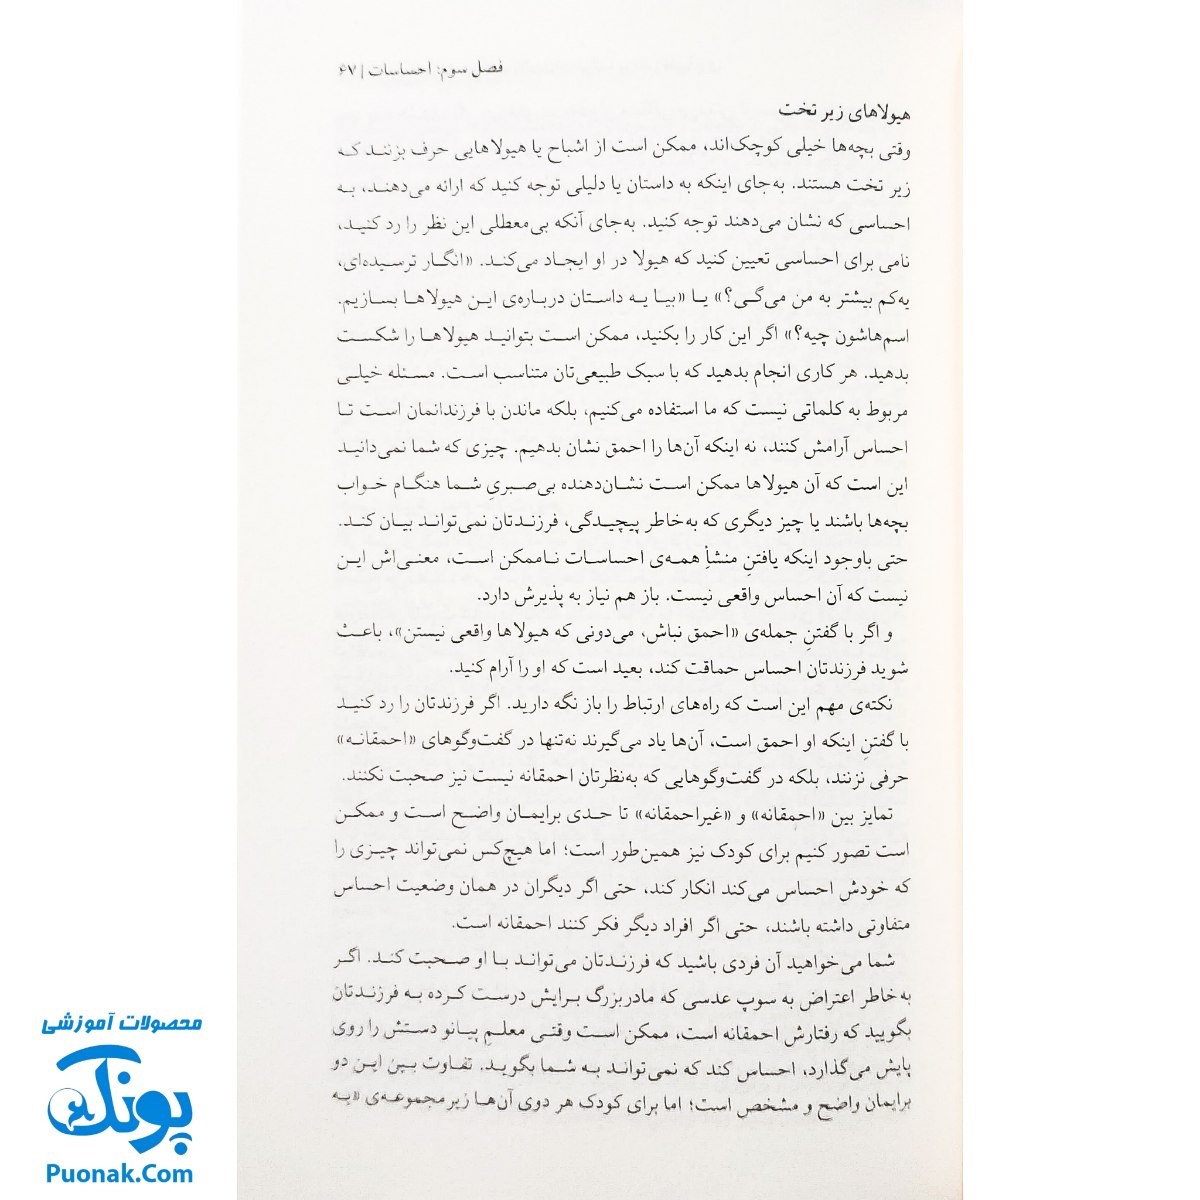 فصل سوم: احساسات | ۶۷
هیولاهای زیر تخت
وقتی بچه‌ها خیلی کوچک‌اند، ممکن است از اشباح یا هیولاهایی حرف بزنند که
زیر تخت هستند. به‌جای اینکه به داستان یا دلیلی توجه کنید که ارائه می‌دهند، به
احساسی که نشان می‌دهند توجه کنید. به‌جای آنکه بی‌معطلی این نظر را رد کنید،
نامی برای احساسی تعیین کنید که هیولا در او ایجاد می‌کند. «انگار ترسیده‌ای،
یه‌کم بیشتر به من می‌گی؟» یا «بیا یه داستان درباره‌ی این هیولاها بسازیم.
اسم‌هاشون چیه؟» اگر این کار را بکنید، ممکن است بتوانید هیولاها را شکست
بدهید. هر کاری انجام بدهید که با سبک طبیعی‌تان متناسب است. مسئله خیلی
مربوط به کلماتی نیست که ما استفاده می‌کنیم، بلکه ماندن با فرزندانمان است تا
احساس آرامش کنند، نه اینکه آن‌ها را احمق نشان بدهیم. چیزی که شما نمی‌دانید
این است که آن هیولاها ممکن است نشان‌دهنده بی‌صبریِ شما هنگام خواب
بچه‌ها باشند یا چیز دیگری که به‌خاطر پیچیدگی، فرزندتان نمی‌تواند بیان کند.
حتی باوجود اینکه یافتنِ منشأِ همه‌ی احساسات ناممکن است، معنی‌اش این
نیست که آن احساس واقعی نیست. باز هم نیاز به پذیرش دارد.
و اگر با گفتنِ جمله‌ی «احمق نباش، می‌دونی که هیولاها واقعی نیستن»، باعث
شوید فرزندتان احساس حماقت کند، بعید است که او را آرام کنید.
نکته‌ی مهم این است که راه‌های ارتباط را باز نگه دارید. اگر فرزندتان را رد کنید
با گفتنِ اینکه او احمق است، آن‌ها یاد می‌گیرند نه‌تنها در گفت‌وگوهای «احمقانه»
حرفی نزنند، بلکه در گفت‌وگوهایی که به‌نظرتان احمقانه نیست نیز صحبت نکنند.
تمایز بین «احمقانه» و «غیراحمقانه» تا حدی برایمان واضح است و ممکن
است تصور کنیم برای کودک نیز همین‌طور است؛ اما هیچ‌کس نمی‌تواند چیزی را
که خودش احساس می‌کند انکار کند، حتی اگر دیگران در همان وضعیت احساس
متفاوتی داشته باشند، حتی اگر افراد دیگر فکر کنند احمقانه است.
شما می‌خواهید آن فردی باشید که فرزندتان می‌تواند با او صحبت کند. اگر
به‌خاطر اعتراض به سوپ عدسی که مادربزرگ برایش درست کرده به فرزندتان
بگویید که رفتارش احمقانه است، ممکن است وقتی معلمِ پیانو دستش را روی
پایش می‌گذارد، احساس کند که نمی‌تواند به شما بگوید. تفاوت بین این دو
برایمان واضح و مشخص است؛ اما برای کودک هر دوی آن‌ها زیرمجموعه‌ی «به
محصولات آموزشی
پونک
Puonak.Com